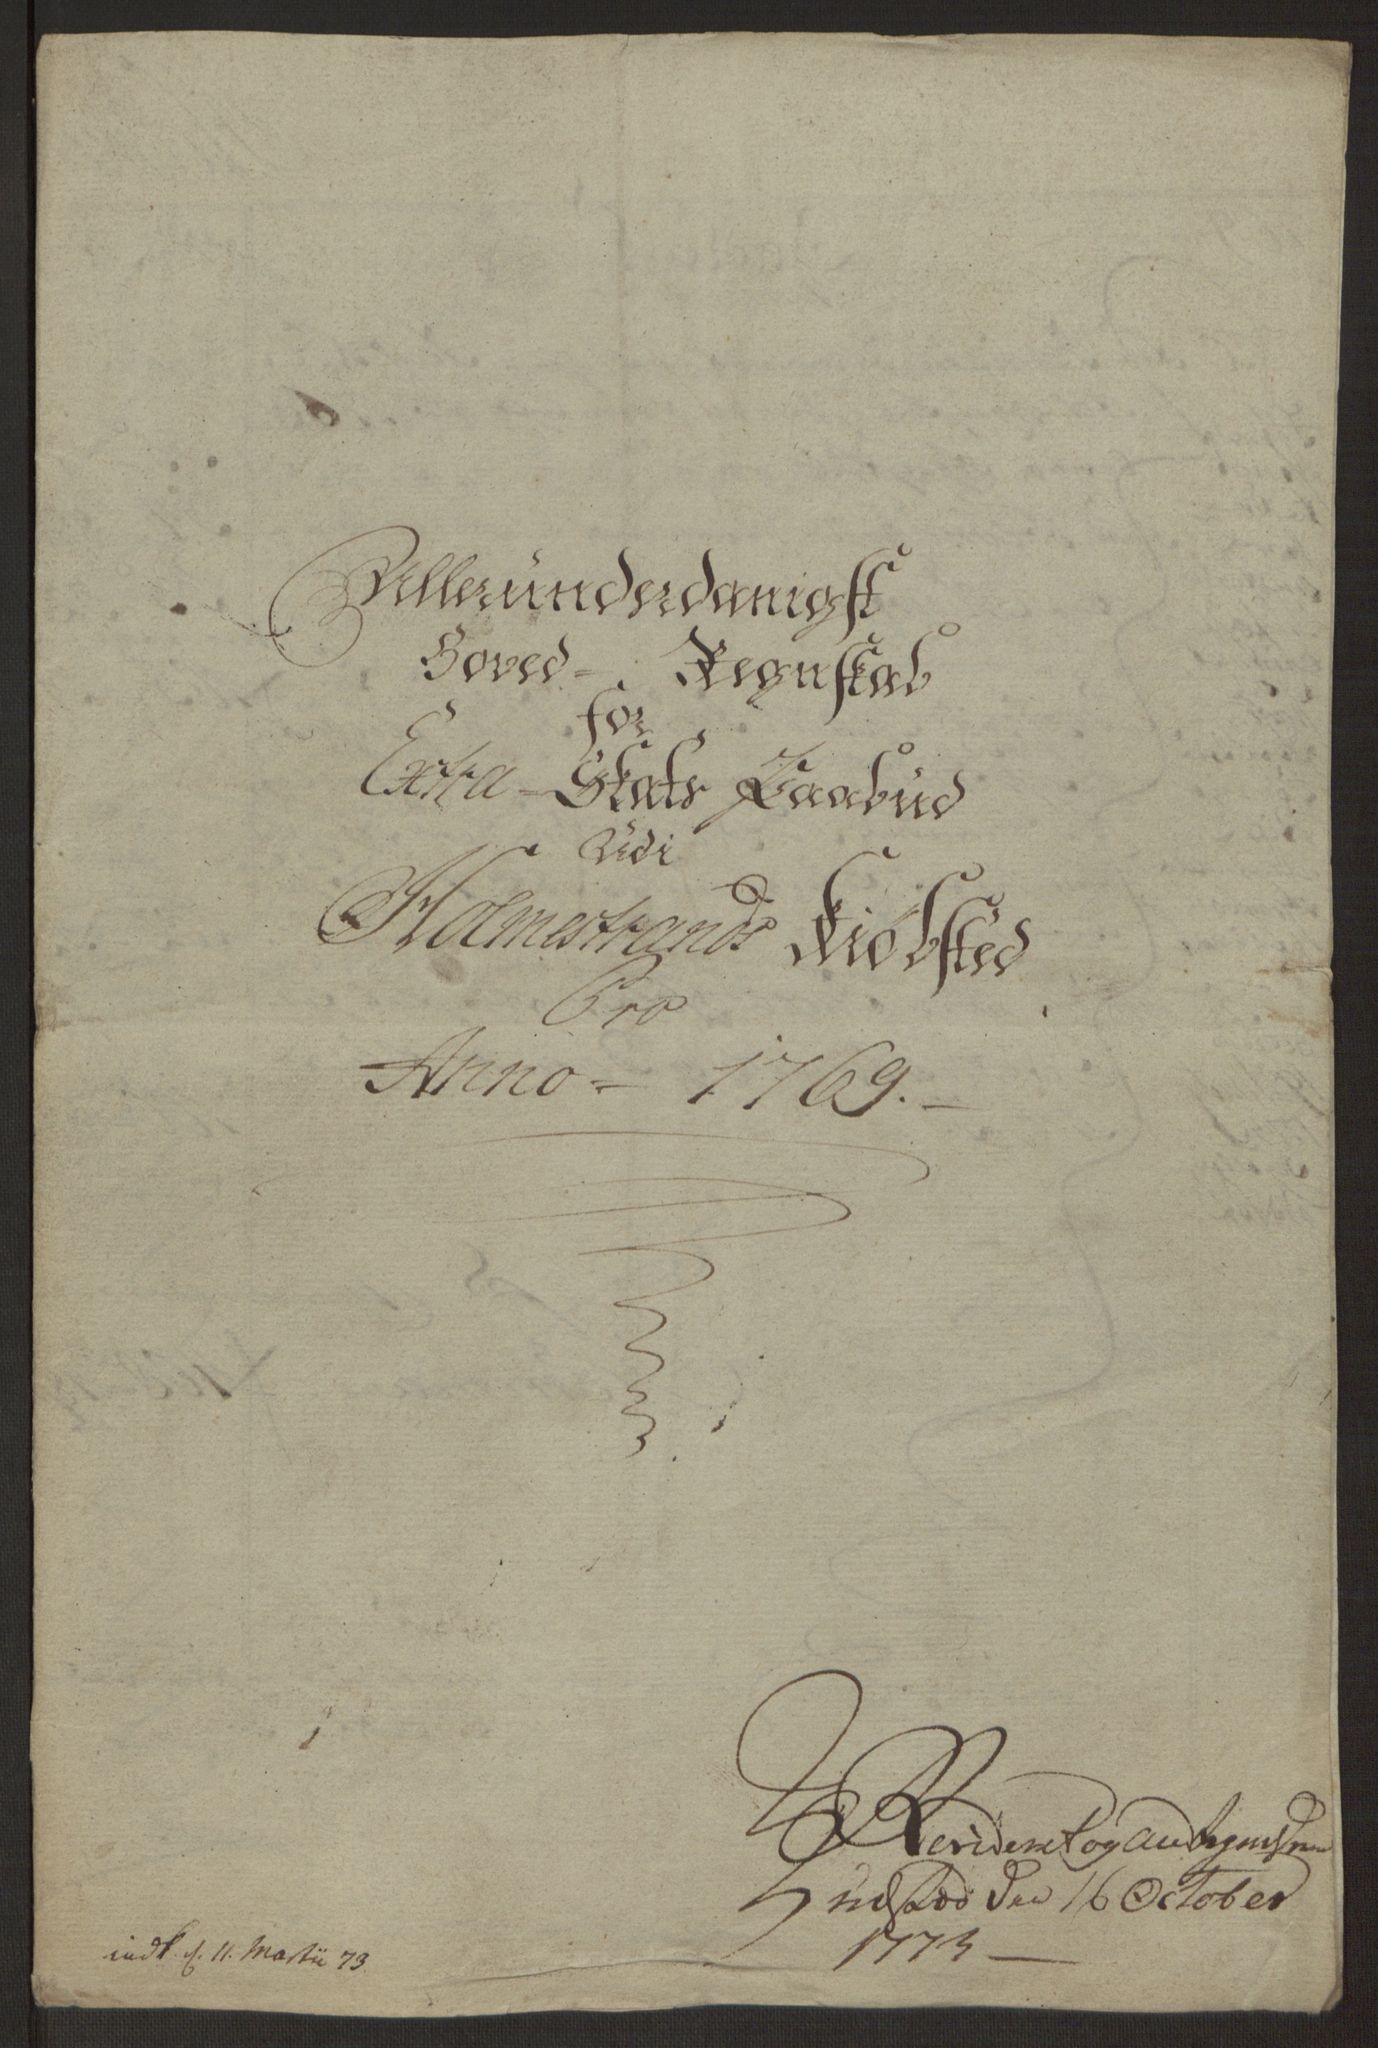 Alleründerdanigst
Hoved- Regnskab
for
Extra - Skats Paabud
Udi
Holmestrands Kiøbsted
Pro
Anno - 1769. -
Revideret og
udstæd den 16 October
1773 -
indk. d. 11. Martii 73